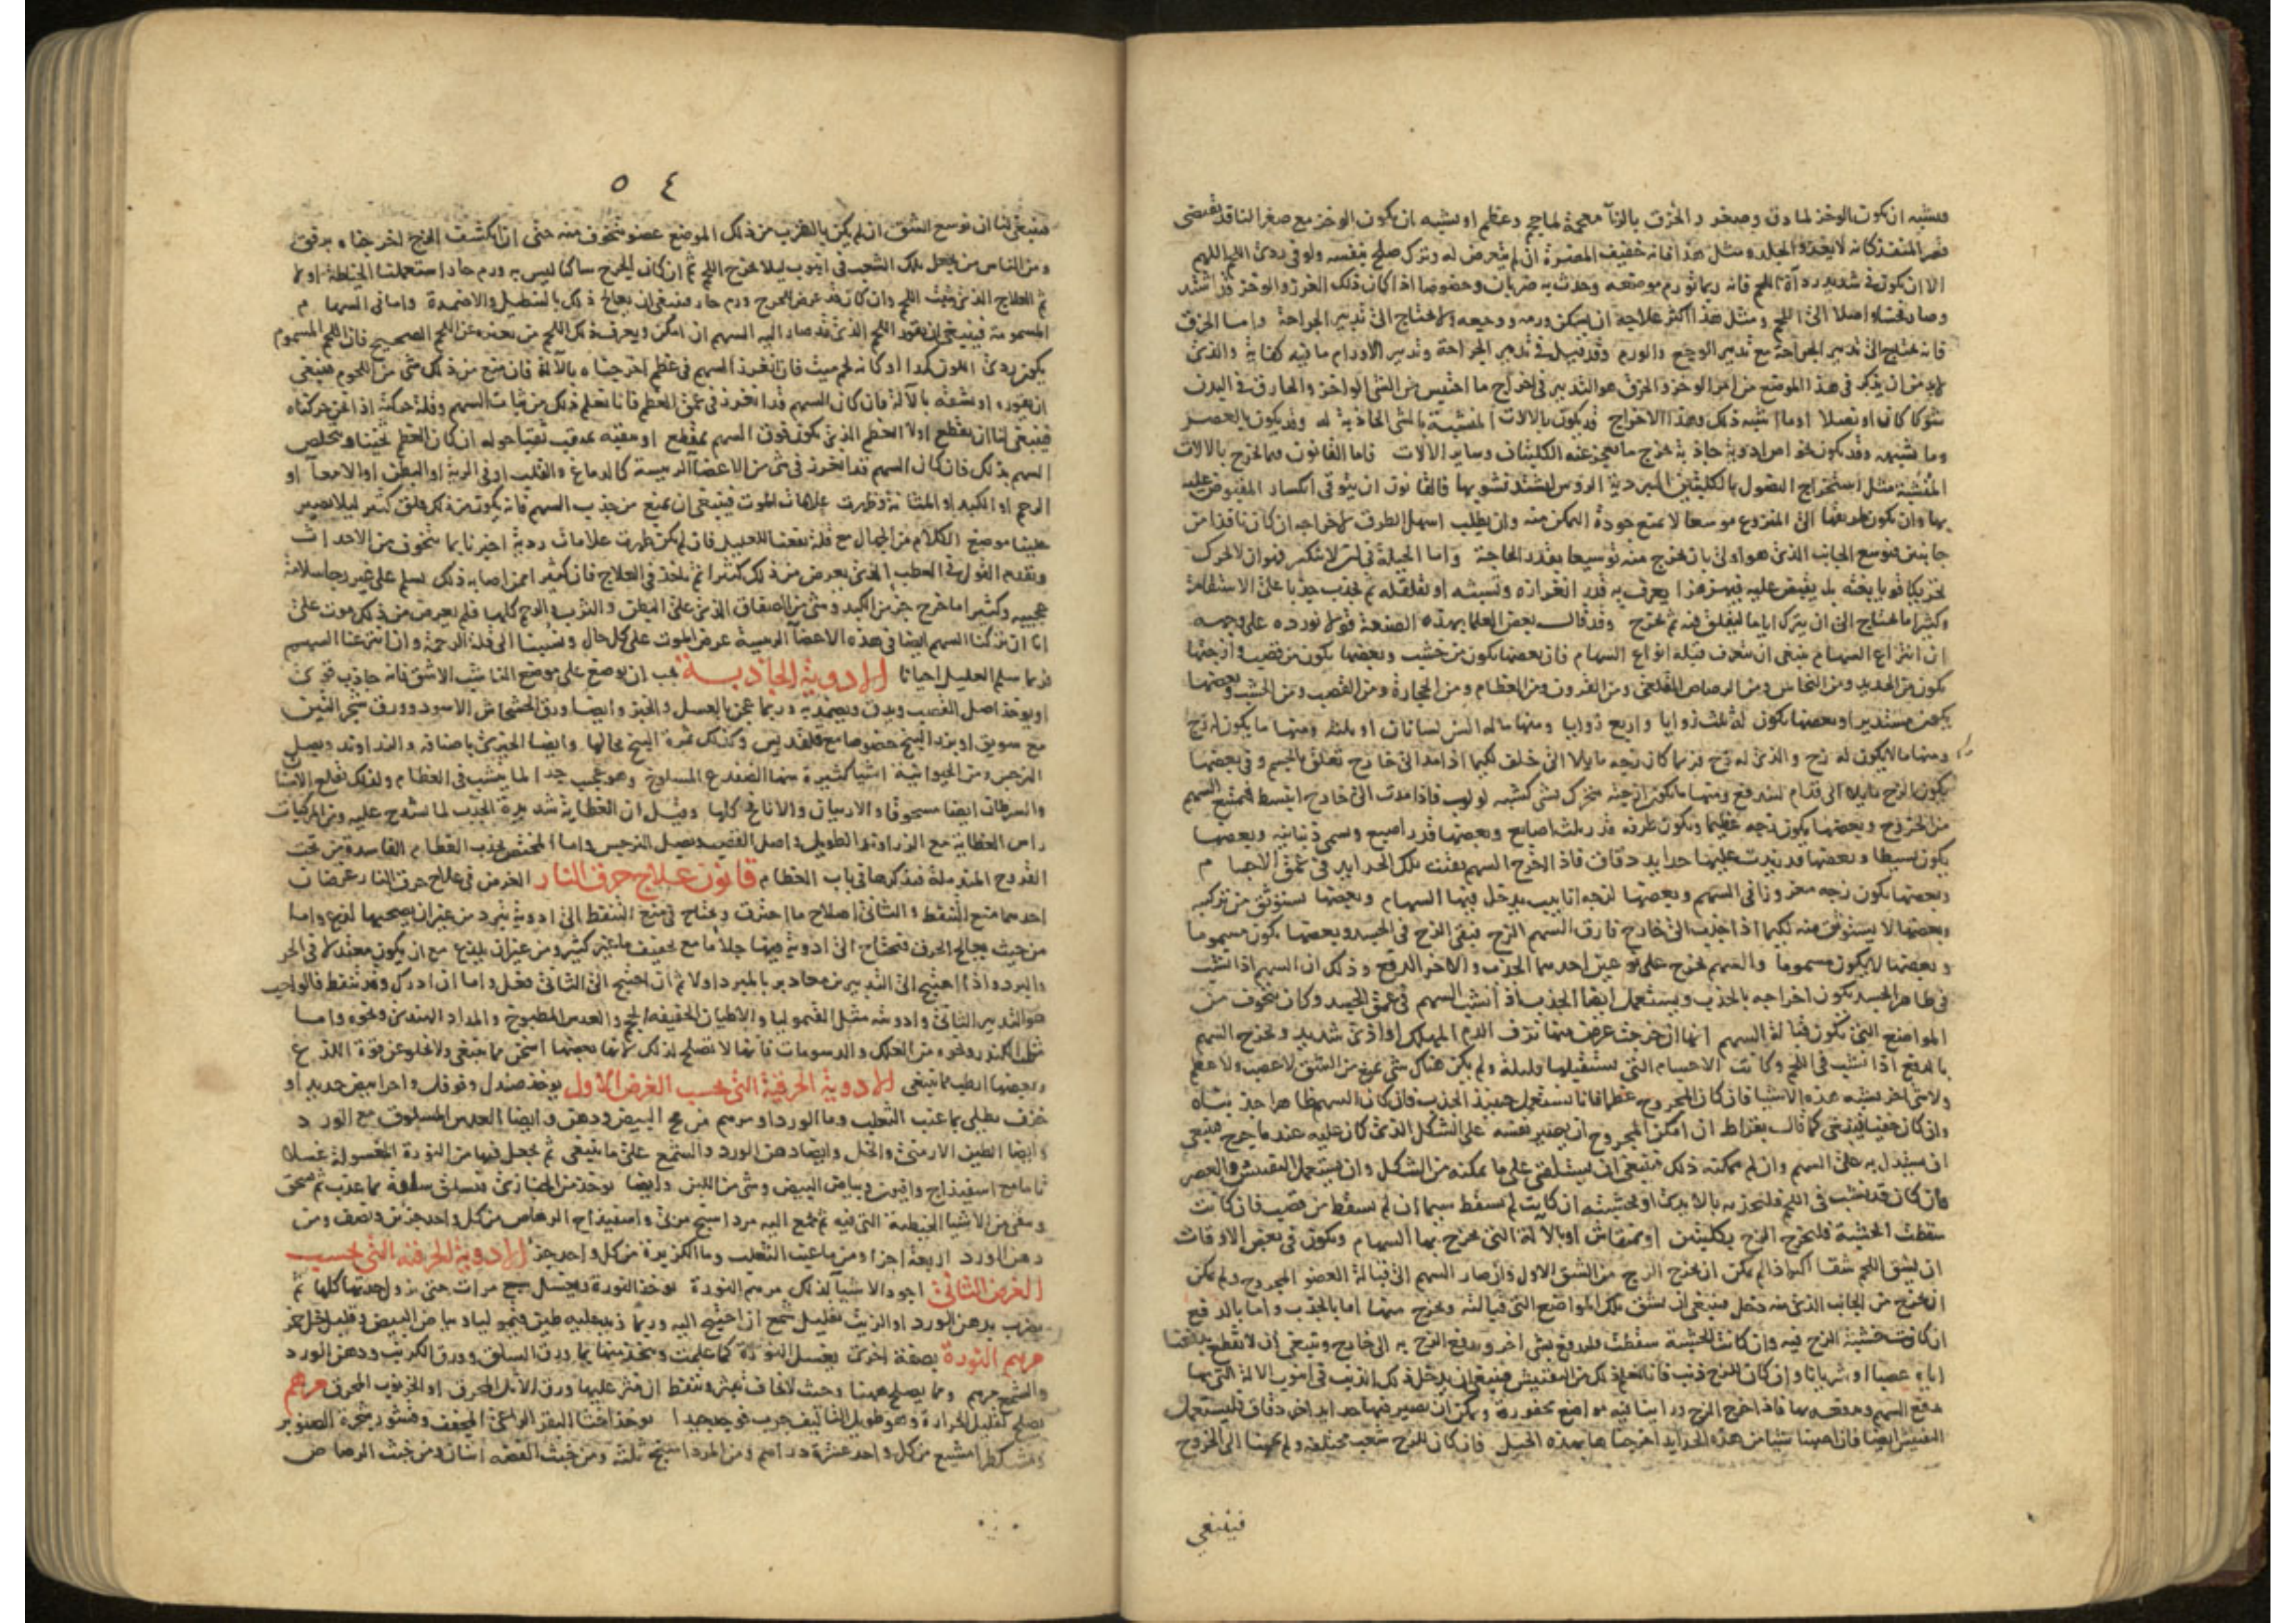 فيشبه ان يكون الوخز لما دق وصغر والخزق بالزآ معجمة لما حجم وعظم او يشبه ان يكون الوخز مع صغر الناقذ يقتضى
قصر المنفذ كانه لا يعدو الجلد ومثل هذا فانه خفيف المضرة ان لم يتعرض له وترك صلح بنفسه ولو فى ردئ اللحم اللهم
الا ان يكون فى شديد ردآة اللحم فانه ربما تورم موضعه وحدث به ضربان وخصوصا اذا كان ذلك الغرز والوخز قد اشتد
وصار واصلا الى اللحم ومثل هذا اكثر علاجه ان يسكن ورمه ووجعه ولا يحتاج الى تدبير الجراحة واما الخزق
فانه يحتاج الى تدبير الجراحة مع تدبير الوجع والورم وقد قيل فى تدبير الجراحة وتدبير الاورام ما فيه كفاية والذى
لا بد من ان يذكر فى هذا الموضع من امر الوخز والخزق هو التدبير فى اخراج ما احتبس من الشى الواخز والخازق فى البدن
شوكا كان او نصلا او ما اشبه ذلك وهذا الاخراج قد يكون بالالات المنشبة بالشى الجاذبة له وقد يكون بالعصر
وما يشبهه وقد يكون بخواص ادوية جاذبة تخرج ما يعجز عنه الكلبتان وساير الالات فاما القانون فيما يخرج بالالات
المنشبة مثل استخراج النصول بالكلبتين المبردية الروس ليشتد تشوبها فالقانون ان يتوقى انكسار المقبوض عليه
بها وان يكون طريقها الى المنزوع موسعا لا يمنع جودة التمكن منه وان يطلب اسهل الطرق لاخراجه ان كان نافذا من
جانبين فتوسع الجانب الذى هو اولى بان يخرج منه توسيعا بقدر الحاجة واما الحيلة فى ان لا ينكسر فهو ان لا يحرك
تحريكا قويا بغتة بل يقبض عليه فيهزهزا يعرف به قدر انغرازه ونشبته او تقلقله ثم يجذب جذبا على الاستقامة
وكثيرا ما يحتاج الى ان يترك اياما ليقلق فيه ثم يخرج وقد قال بعض العلما بهذه الصنعة قولا نورده على وجهه
ان انتزاع السهام ينبغى ان تتعرف قبله انواع السهام فان بعضها يكون من خشب وبعضها يكون من قصب وازجتها
تكون من الحديد ومن النحاس ومن الرصاص القلعى ومن القرون ومن العظام ومن الحجارة ومن القصب ومن الخشب وبعضها
يكون مستديرا وبعضها يكون له ثلث زوايا واربع زوايا ومنها ما له السن لسانان او ثلثه ومنها ما يكون له زج
ومنها ما لا يكون له زج والذى له زج فربما كان زجه مايلا الى خلف لكيما اذا مد الى خارج تعلق بالجسم وفى بعضها
يكون الزج مايلا الى قدام ليندفع ومنها ما تكون ازجته تتحرك بشى كشبه لولب فاذا مدت الى خارج انبسط فتمنع السهم
من الخروج وبعضها يكون زجه عظيما ويكون طرفه قدر ثلث اصابع وبعضها قدر اصبع ويسمى ذبابيه وبعضها
يكون بسيطا وبعضها قد زيدت عليها حدايد دقاق فاذا اخرج السهم بقيت تلك الحدايد فى عمق الاجسام
وبعضها يكون زجه مغروزا فى السهم وبعضها لزجه انابيب يدخل فيها السهام وبعضها يستوثق من تركيبه
وبعضها لا يستوثق منه لكيما اذا جذب الى خارج فارق السهم الزج فيبقى الزج فى الجسد وبعضها يكون مسموما
وبعضها لا يكون مسموما والسهم يخرج على نوعين احدهما الجذب والاخر الدفع وذلك ان السهم اذا نشب
فى ظاهر الجسد يكون اخراجه بالجذب ويستعمل ايضا الجذب اذا نشب السهم فى عمق الجسد وكان يتخوف من
المواضع التى تكون قبالة السهم انها ان خرجت عرض منها نزف الدم المهلك او اذى شديد ويخرج السهم
بالدفع اذا نشب فى اللحم وكانت الاجسام التى تستقبلها قليلة ولم يكن هناك شى يمنع من الشق لا عصب ولا عظم
ولا شى اخر يشبه هذه الاشيا فان كان المجروح عظما فانا نستعمل حينئذ الجذب فان كان السهم ظاهرا جذبناه
وان كان خفيا فينبغى كما قال بقراط ان امكن المجروح ان يصير نفسه على الشكل الذى كان عليه عند ما جرح فينبغى
ان يستدل به على السهم وان لم يمكنه ذلك فينبغى ان يستلقى على ما يمكنه من الشكل وان يستعمل التفتيش والعصر
فان كان قد نشب فى اللحم فليجذب بالايدى او بخشبته ان كانت لم تسقط سيما ان لم تسقط من قصب فان كانت
سقطت الخشبة فليخرج الزج بكلبتين او بمنقاش او بالآلة التى يخرج بها السهام ويكون فى بعض الاوقات
ان يشق اللحم شقا اكبر اذا لم يكن ان يخرج الزج من الشق الاول واذ صار السهم الى قبالة العضو المجروح ولم يكن
ان يخرج من الجانب الذى منه دخل فينبغى ان يشق تلك المواضع التى قبالته ويخرج منها اما بالجذب واما بالدفع
ان كانت خشبة الزج فيه وان كانت الخشبة سقطت فليدفع بشى اخر ويدفع الزج به الى خارج وينبغى ان لا تقطع بدفعنا
اياه عصبا او شريانا وان كان للزج ذنب فانا نعلم ذلك من التفتيش فينبغى ان يدخل ذلك الذنب فى انبوب الالة التى بها
يدفع السهم ويدفعه بها فاذا خرج الزج وراينا فيه مواضع محفورة ويمكن ان تصير فيها حدايد اخر دقاق فليستعمل
التفتيش ايضا فان اصبنا شيا من هذه الحدايد اخرجناها بهذه الحيل فان كان للزج شعب مختلفة ولم يجبنا الى الخروج
فينبغي
٥٤
فينبغى لنا ان نوسع الشق ان لم يكن بالقرب من ذلك الموضع عضو نتخوف منه حتى اذا انكشف الزج اخرجناه برفق
ومن الناس من يجعل تلك الشعب فى انبوب ليلا يخرج اللحم ثم ان كان الجرح ساكنا ليس به ورم حار استعملنا الخياطة اولا
ثم العلاج الذى ينبت اللحم وان كان قد عرض للجرح ورم حار فينبغى ان يعالج ذلك بالتنطيل والاضمدة واما فى السهام
المسمومة فينبغى ان يقور اللحم الذى قد صار اليه السهم ان امكن ويعرف ذلك اللحم من تغيره عن اللحم الصحيح فان اللحم المسموم
يكون ردئ اللون كمدا او كانه لحم ميت فان انغرز السهم فى عظم اخرجناه بالآلة فان منع من ذلك شى من اللحوم فينبغى
ان نقوره او نشقه بالآلة فان كان السهم قد انغرز فى عمق العظم فانا نعلم ذلك من ثبات السهم وقلة حركته اذا نحن حركناه
فينبغى لنا ان نقطع اولا العظم الذى يكون فوق السهم بمقطع او نثقبه بمثقب ثقبا حوله ان كان العظم ثخينا ويخلص
السهم بذلك فان كان السهم قد انغرز فى شى من الاعضآ الرييسة كالدماغ والقلب او فى الرية او البطن او الامعآ او
الرحم او الكبد او المثانة وظهرت علامات الموت فينبغى ان نمنع من جذب السهم فانه يكون من ذلك قلق كثير ليلا نصير
علينا موضع الكلام من الجهال مع قلة نفعنا للعليل فان لم يكن ظهرت علامات ردية اخبرنا بما نتخوف من الاحداث
ونقدم القول فى العطب الذى يعرض من ذلك كثيرا ثم ناخذ فى العلاج فان كثيرا ممن اصابه ذلك سلم على غير رجا سلامة
عجيبة وكثيرا ما خرج جز من الكبد وشى من الصفاق الذى على البطن والثرب والرحم كلها فلم يعرض من ذلك موت على
انا ان تركنا السهم ايضا فى هذه الاعضآ الرييسة عرض الموت على كل حال ونسبنا الى قلة الرحمة وان انتزعنا السهم
فربما سلم العليل احيانا الادوية الجاذبة يجب ان يوضع على موضع الناشب الاشق فانه جاذب قوى
او يوخذ اصل القصب ويدق ويضمد به وربما عجن بالعسل والخبز وايضا ورق الخشخاش الاسود وورق شجر التين
مع سويق او بزر البنج خصوصا مع قلقديس وكذلك ثمرة البنج بحالها وايضا الخيرى باصنافه والزراوند وبصل
النرجس ومن الحيوانية اشيا كثيرة منها الضفدع المسلوخ وهو عجيب جدا لما ينشب فى العظام ولذلك يقلع الاسنان
والسرطان ايضا مسحوقا والاربيان والانافح كلها وقيل ان العظاية شديدة الجذب لما شدخ عليه ومن المركبات
راس العظاية مع الزراوند الطويل واصل القصب وبصل النرجس واما المختص بجذب العظام الفاسدة من تحت
القروح المندملة فنذكرها فى باب العظام قانون علاج حرق النار الغرض فى علاج حرق النار غرضان
احدهما منع التنفط والثانى اصلاح ما احترق ويحتاج فى منع التنفط الى ادوية تبرد من غير ان يصحبها لذع واما
من حيث يعالج الحرق فتحتاج الى ادوية فيها جلا ما مع تجفيف ما غير كثير ومن غير ان يلذع مع ان يكون معتدلا فى الحر
والبرد واذا احتيج الى التدبيرين معا دبر بالمبرد اولا ثم ان احتيج الى الثانى فعل واما ان ادرك وقد تنفط فالواجب
هو التدبير الثانى وادويته مثل القيموليا والاطيان الخفيفة الحجم والعدس المطبوخ والمداد الهندى ونحوه واما
مثل الكندر ونحوه من العلك والدسومات فانها لا تصلح لذلك لانها بعضها اسخن مما ينبغى ولا يخلو عن قوة اللذع
وبعضها ارطب مما ينبغى الادوية الحرقية التى بحسب الغرض الاول يوخذ صندل وفوفل واجر ابيض جديد او
خزف يطلى بما عنب الثعلب وما الورد او مرهم من مح البيض ودهن وايضا العدس المسلوق مع الورد
وايضا الطين الارمنى والخل وايضا دهن الورد والشمع على ما ينبغى ثم يجعل فيها من النورة المغسولة غسلا
تاما مع اسفيذاج وافيون وبياض البيض وشى من اللبن وايضا يوخذ من الخبازى فتسلق سلقة بما عذب ثم تسحق
وينقى من الاشيا الخيطية التى فيه ثم يجمع اليه مرداسنج مربى واسفيذاج الرصاص من كل واحد جز ونصف ومن
دهن الورد اربعة اجزا ومن ما عنب الثعلب وما الكزبرة من كل واحد جز الادوية الحرقية التى بحسب
الغرض الثانى اجود الاشيآ لذلك مرهم النورة يوخذ النورة ويغسل سبع مرات حتى تزول حدتها كلها ثم
يضرب بدهن الورد او الزيت بقليل شمع ان احتيج اليه وربما زيد عليه طين قيموليا وبياض البيض وقليل خل خمر
مرهم النورة بصفة اخرى يغسل النورة كما علمت ويتخذ منها بما ورق السلق وورق الكرنب ودهن الورد
والشمع مرهم ومما يصلح ههنا وحيث لا يخاف تبثر وتنفط ان ينثر عليها ورق الاثل المحرق او الخرنوب المحرق مرهم
يصلح لقليل الحرارة وهو طويل التاليف مجرب قوى جدا يوخذ اخثا البقر الراعى المجفف وقشور شجرة الصنوبر
ومشكطرامشيع من كل واحد عشرة دراهم ومن المرداسنج ثلثة ومن خبث الفضة اثنان ومن خبث الرصاص